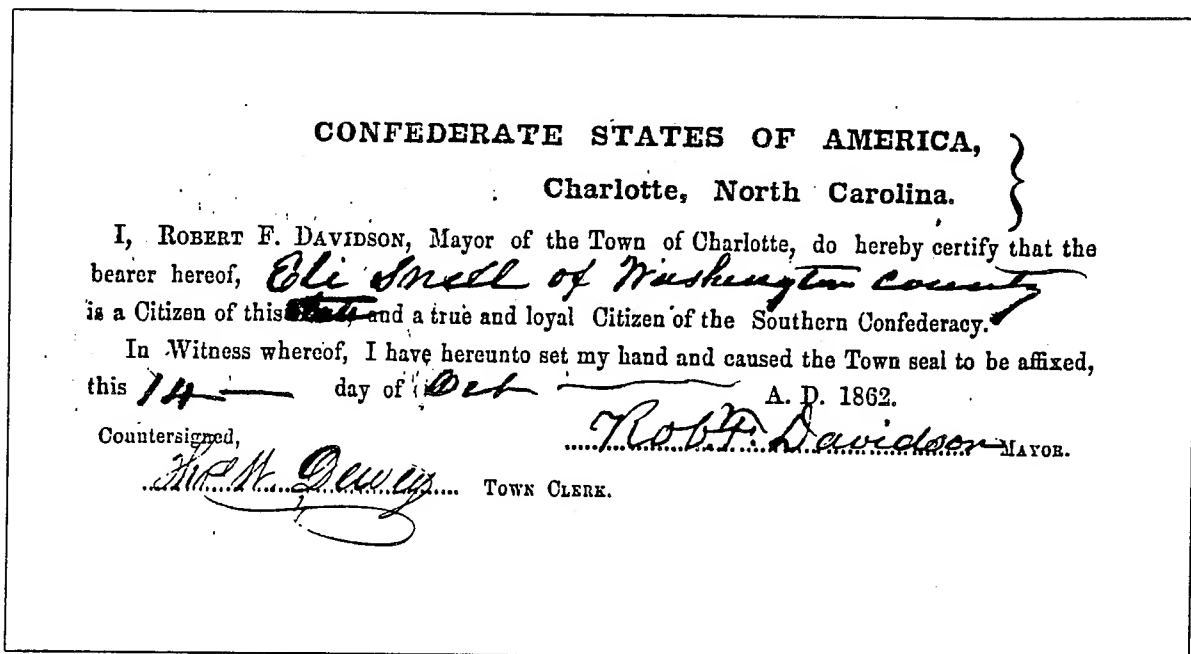 CONFEDERATE STATES OF AMERICA,
Charlotte, North Carolina.
I, ROBERT F. DAVIDSON, Mayor of the Town of Charlotte, do hereby certify that the
bearer hereof, Eli Snell of Washington County
is a Citizen of this State, and a true and loyal Citizen of the Southern Confederacy.
In Witness whereof, I have hereunto set my hand and caused the Town seal to be affixed,
this 14 day of Oct A. D. 1862.
Countersigned,
Rob F. Davidson MAYOR.
Dewey TOWN CLERK.